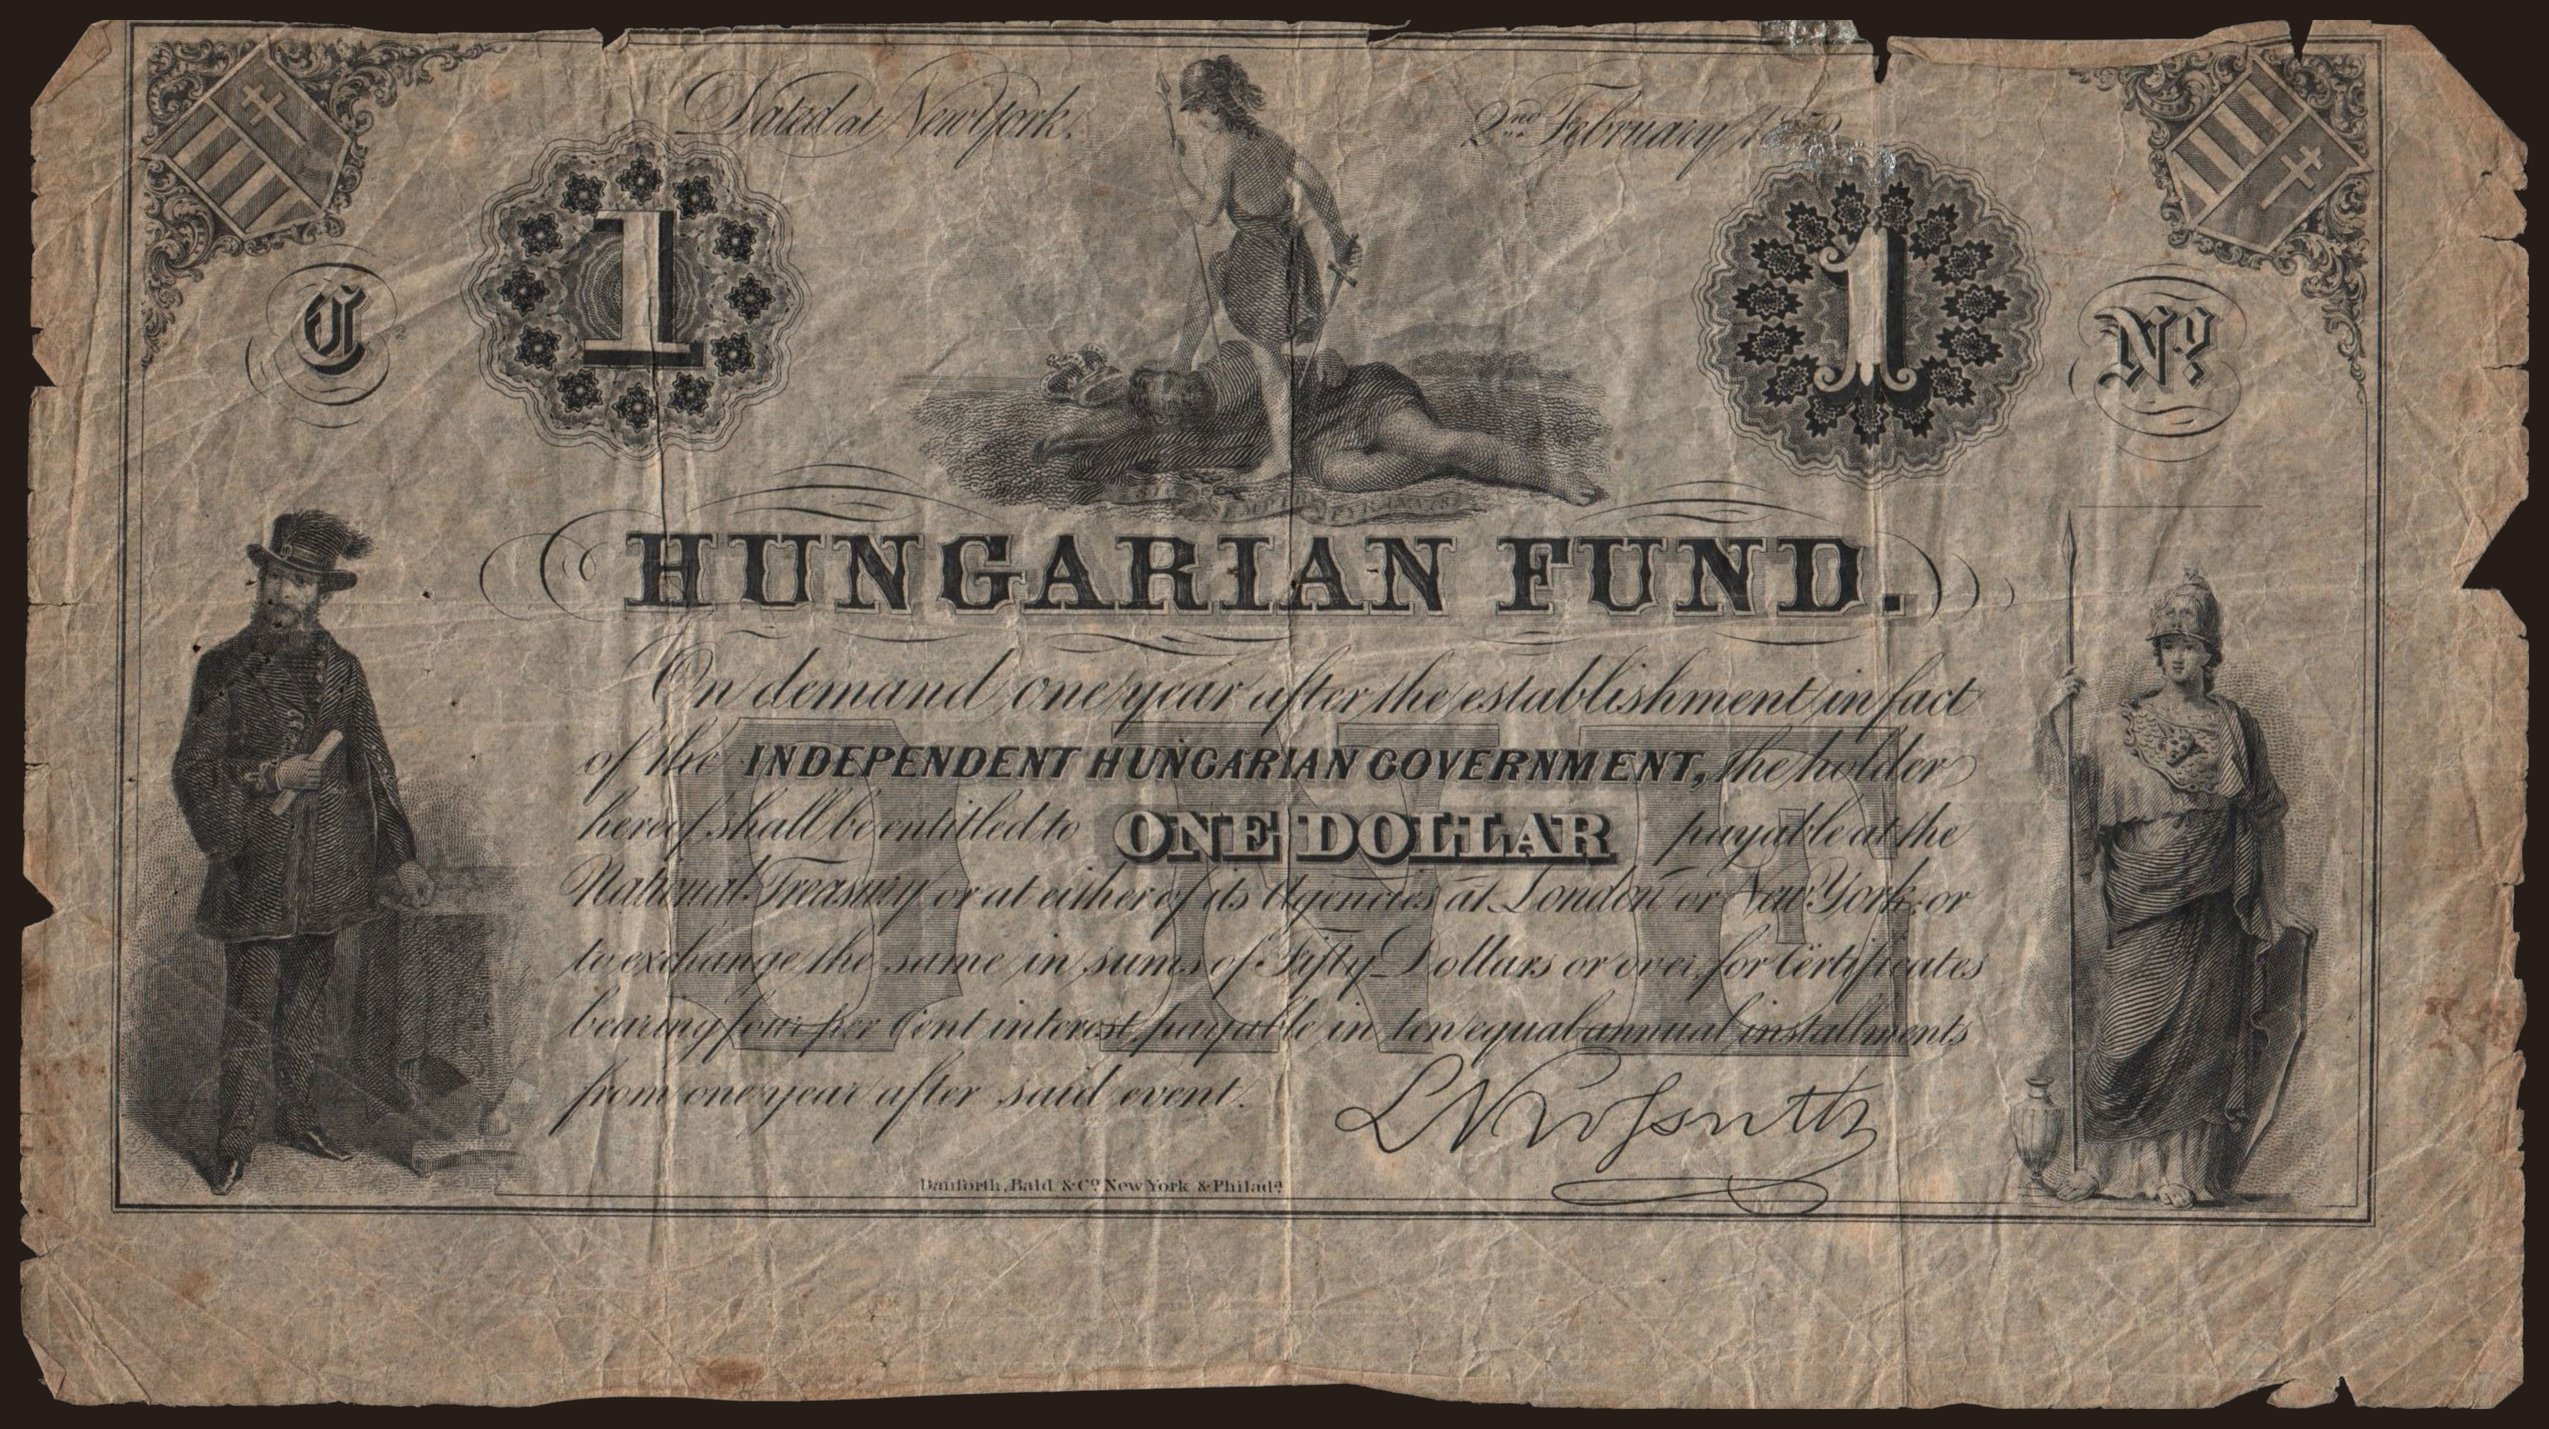 Dated at New York.
2nd February, 1852
C
1
1
No.
SIC SEMPER TYRANNIS
HUNGARIAN FUND.
On demand one year after the establishment in fact
of the INDEPENDENT HUNGARIAN GOVERNMENT, the holder
hereof shall be entitled to ONE DOLLAR payable at the
National Treasury or at either of its Agencies at London or New York; or
to exchange the same in sums of Fifty Dollars or over, for Certificates
bearing four per Cent interest, payable in ten equal annual installments
from one year after said event.
ONE
L Kossuth
Danforth, Bald & Co. New York & Philada.